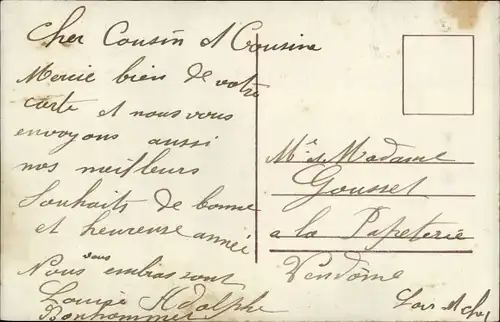 Cher Cousin et Cousine
Mercie bien de votre
carte et nous vous
envoyons aussi
nos meilleurs
Souhaits de bonne
et heureuse année
Nous vous embrassont
Louise Adolphe
Bonhommet
Mr et Madame
Gousset
a la Papeterie
Vendôme
Loir et Cher